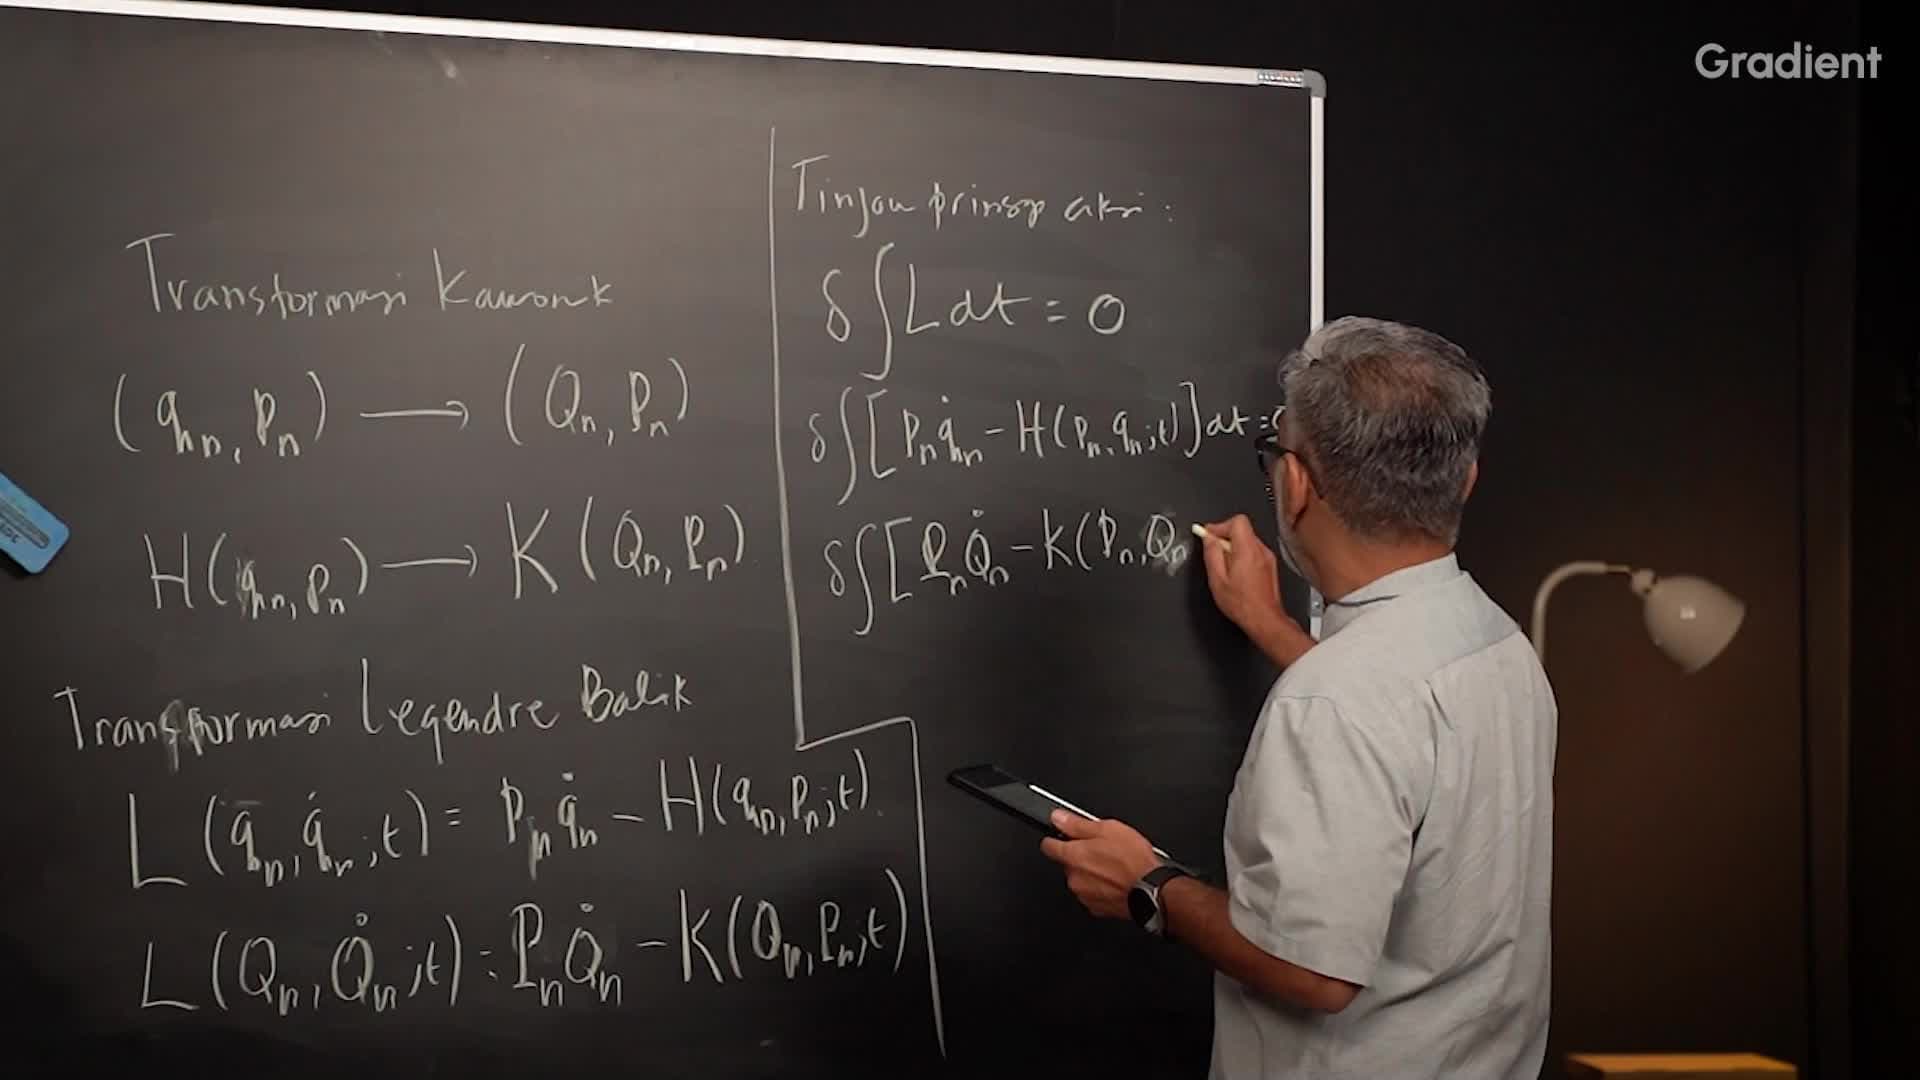 Gradient
Transformasi Kanonik
(qn, pn) → (Qn, Pn)
H(qn, pn) → K(Qn, Pn)
Transformasi Legendre Balik
L(qn, q̇n; t) = pn q̇n − H(qn, pn; t)
L(Qn, Q̇n; t) = Pn Q̇n − K(Qn, Pn; t)
Tinjau prinsip aksi:
δ∫L dt = 0
δ∫[pn q̇n − H(pn, qn; t)] dt =
δ∫[Pn Q̇n − K(Pn, Qn